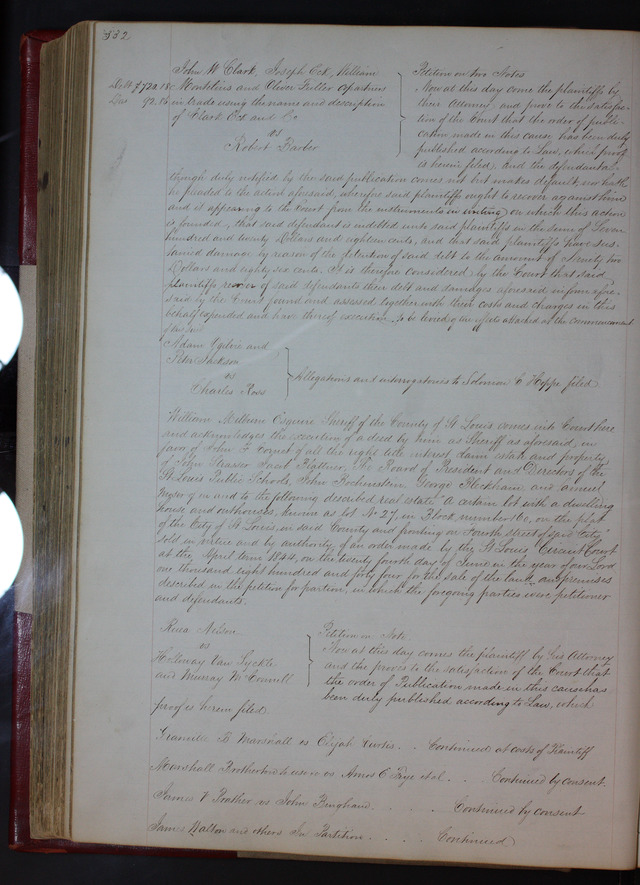 532
John W Clark, Joseph Eck, William
Debt $720.18 Montelius and Oliver Fuller copartners
Das 92.86 in trade using the name and description
of Clark Eck and Co
vs
Robert Barber
Petition on two Notes
Now at this day come the plaintiffs by
their Attorney, and prove to the satisfac-
tion of the Court that the order of publi-
cation made in this cause, has been duly
published according to Law, which proof
is herein filed, and the defendant al-
though duly notified by the said publication comes not but makes default, nor hath
he pleaded to the action aforesaid, wherefore said plaintiffs ought to recover against him
and it appearing to the Court from the instruments in writing on which this action
is founded, that said defendant is indebted unto said plaintiffs in the sum of Seven
hundred and twenty Dollars and eighteen cents, and that said plaintiffs have sus-
tained damage by reason of the detention of said debt to the amount of Ninety two
Dollars and eighty six cents. It is therefore considered by the Court that said
plaintiffs recover of said defendants their debt and damages aforesaid in form afore-
said by the Court found and assessed together with their costs and charges in this
behalf expended and have thereof execution, to be levied of the effects attached at the commencement
of this suit
Adam and
Peter Jackson
vs
Charles Ross
Allegations and interrogatories to Solomon C Hoppe filed
William Milburn Esquire Sheriff of the County of St Louis comes into Court here
and acknowledges the execution of a deed by him as Sheriff as aforesaid, in
favor of John F of all the right title interest claim estate and property
of John Strasser Jacob Blattner, The Board of President and Directors of the
St Louis Public Schools, John George Fleckham and
of in and to the following described real estate "A certain lot with a dwelling
house and outhouses, known as lot No 27, in Block number 60, on the plat
of the City of St Louis, in said County and fronting on Fourth street of said City"
sold in virtue and by authority of an order made by the St Louis Circuit Court
at the April term 1844, on the twenty fourth day of June in the year of our Lord
one thousand eight hundred and forty four, for the sale of the land and premises
described in the petition for partion, in which the foregoing parties were petitioner
and defendants.
Nelson
vs
Holloway Van Syckle
and Murray McConnell
Petition on Note.
Now at this day comes the plaintiff by his Attorney
and the proves to the satisfaction of the Court that
the order of Publication made in this cause has
been duly published according to Law, which
proof is herein filed.
Granville B Marshall vs Elijah Curtis . . Continued at costs of Plaintiff
Marshall Brotherton to use vs Amos C et al . . . Continued by consent.
James V Prather vs John Bingham . . . . Continued by consent
James Walton and others In Partition . . . . Continued